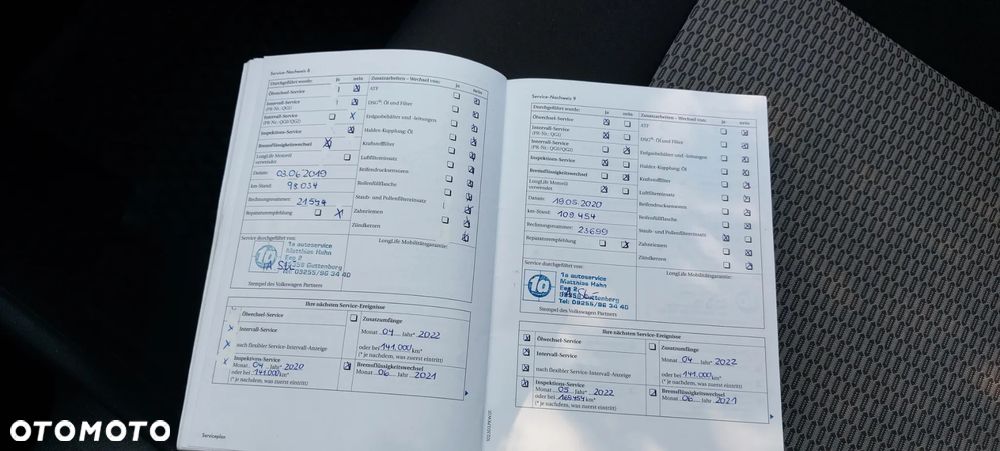 Service-Nachweis 8
Durchgeführt wurde: ja nein
Zusatzarbeiten – Wechsel von: ja nein
Ölwechsel-Service
Intervall-Service
(PR-Nr.: QG1)
Intervall-Service
(PR-Nr.: QG0/QG2)
Inspektions-Service
Bremsflüssigkeitswechsel
LongLife Motoröl
verwendet
Datum: 03.06.2019
km-Stand: 98.034
Rechnungsnummer: 21594
Reparaturempfehlung
ATF
DSG®: Öl und Filter
Erdgasbehälter und -leitungen
Haldex-Kupplung: Öl
Kraftstofffilter
Luftfiltereinsatz
Reifendrucksensoren
Reifenfüllflasche
Staub- und Pollenfiltereinsatz
Zahnriemen
Zündkerzen
Service durchgeführt von:
LongLife Mobilitätsgarantie:
1a autoservice
Matthias Hahn
Eeg 2
95358 Guttenberg
Tel: 09255/96 34 40
Stempel des Volkswagen Partners
Ihre nächsten Service-Ereignisse
Ölwechsel-Service
Intervall-Service
nach flexibler Service-Intervall-Anzeige
Inspektions-Service
Monat 04 Jahr* 2020
oder bei 141.000 km*
(* je nachdem, was zuerst eintritt)
Zusatzumfänge
Monat 04 Jahr* 2022
oder bei 141.000 km*
(* je nachdem, was zuerst eintritt)
Bremsflüssigkeitswechsel
Monat 06 Jahr 2021
Serviceplan
Service-Nachweis 9
Durchgeführt wurde: ja nein
Zusatzarbeiten – Wechsel von: ja nein
Ölwechsel-Service
Intervall-Service
(PR-Nr.: QG1)
Intervall-Service
(PR-Nr.: QG0/QG2)
Inspektions-Service
Bremsflüssigkeitswechsel
LongLife Motoröl
verwendet
Datum: 19.05.2020
km-Stand: 109.454
Rechnungsnummer: 23699
Reparaturempfehlung
ATF
DSG®: Öl und Filter
Erdgasbehälter und -leitungen
Haldex-Kupplung: Öl
Kraftstofffilter
Luftfiltereinsatz
Reifendrucksensoren
Reifenfüllflasche
Staub- und Pollenfiltereinsatz
Zahnriemen
Zündkerzen
Service durchgeführt von:
LongLife Mobilitätsgarantie:
1a autoservice
Matthias Hahn
Eeg 2
Guttenberg
Tel: 09255/96 34 40
Stempel des Volkswagen Partners
Ihre nächsten Service-Ereignisse
Ölwechsel-Service
Intervall-Service
nach flexibler Service-Intervall-Anzeige
Inspektions-Service
Monat 05 Jahr* 2022
oder bei 169.454 km*
(* je nachdem, was zuerst eintritt)
Zusatzumfänge
Monat 04 Jahr* 2022
oder bei 141.000 km*
(* je nachdem, was zuerst eintritt)
Bremsflüssigkeitswechsel
Monat 06 Jahr 2021
OTOMOTO